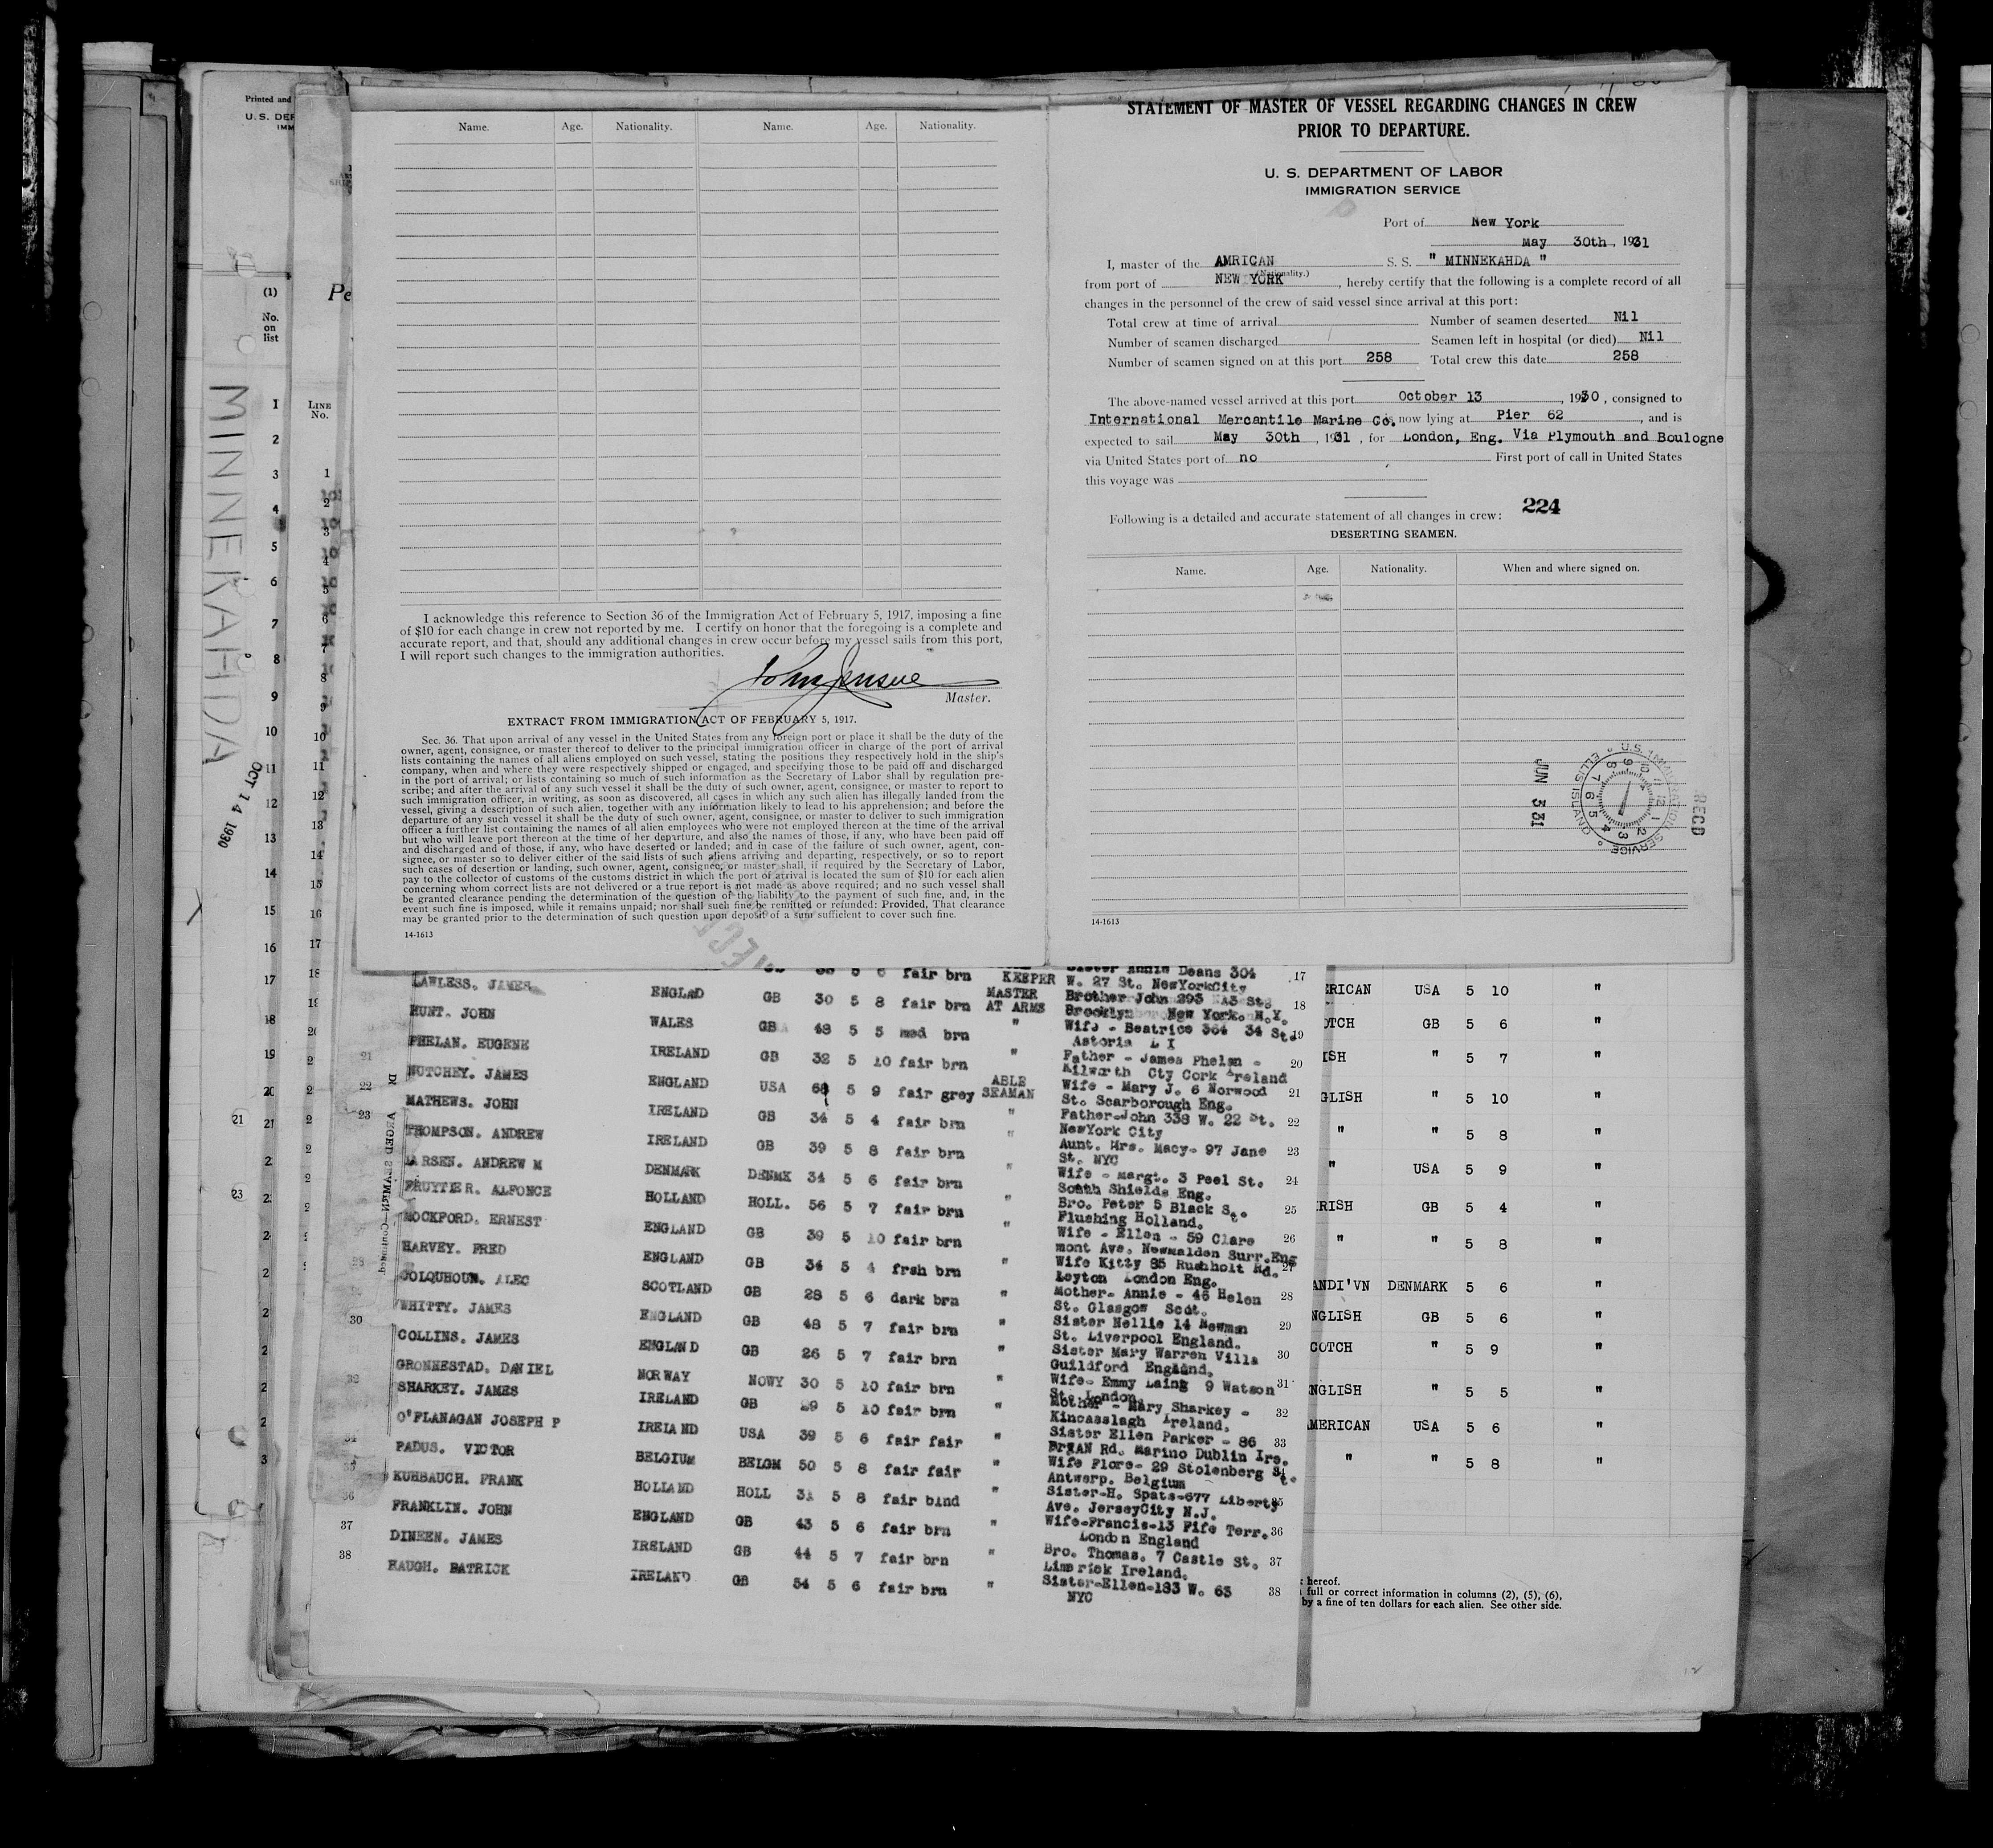 Printed and
U. S. DEP
IMM
(1)
No.
on
list
Pe
LINE
No.
MINNEKAHDA
OCT 14 1930
Name. Age. Nationality. Name. Age. Nationality.
I acknowledge this reference to Section 36 of the Immigration Act of February 5, 1917, imposing a fine
of $10 for each change in crew not reported by me. I certify on honor that the foregoing is a complete and
accurate report, and that, should any additional changes in crew occur before my vessel sails from this port,
I will report such changes to the immigration authorities.
Master.
EXTRACT FROM IMMIGRATION ACT OF FEBRUARY 5, 1917.
Sec. 36. That upon arrival of any vessel in the United States from any foreign port or place it shall be the duty of the
owner, agent, consignee, or master thereof to deliver to the principal immigration officer in charge of the port of arrival
lists containing the names of all aliens employed on such vessel, stating the positions they respectively hold in the ship's
company, when and where they were respectively shipped or engaged, and specifying those to be paid off and discharged
in the port of arrival; or lists containing so much of such information as the Secretary of Labor shall by regulation pre-
scribe; and after the arrival of any such vessel it shall be the duty of such owner, agent, consignee, or master to report to
such immigration officer, in writing, as soon as discovered, all cases in which any such alien has illegally landed from the
vessel, giving a description of such alien, together with any information likely to lead to his apprehension; and before the
departure of any such vessel it shall be the duty of such owner, agent, consignee, or master to deliver to such immigration
officer a further list containing the names of all alien employees who were not employed thereon at the time of the arrival
but who will leave port thereon at the time of her departure, and also the names of those, if any, who have been paid off
and discharged and of those, if any, who have deserted or landed; and in case of the failure of such owner, agent, con-
signee, or master so to deliver either of the said lists of such aliens arriving and departing, respectively, or so to report
such cases of desertion or landing, such owner, agent, consignee, or master shall, if required by the Secretary of Labor,
pay to the collector of customs of the customs district in which the port of arrival is located the sum of $10 for each alien
concerning whom correct lists are not delivered or a true report is not made as above required; and no such vessel shall
be granted clearance pending the determination of the question of the liability to the payment of such fine, and, in the
event such fine is imposed, while it remains unpaid; nor shall such fine be remitted or refunded: Provided, That clearance
may be granted prior to the determination of such question upon deposit of a sum sufficient to cover such fine.
14-1613
STATEMENT OF MASTER OF VESSEL REGARDING CHANGES IN CREW
PRIOR TO DEPARTURE.
U. S. DEPARTMENT OF LABOR
IMMIGRATION SERVICE
Port of New York
May 30th, 1931
I, master of the AMRICAN S. S. " MINNEKAHDA "
(Nationality.)
from port of NEW YORK, hereby certify that the following is a complete record of all
changes in the personnel of the crew of said vessel since arrival at this port:
Total crew at time of arrival Number of seamen deserted Nil
Number of seamen discharged Seamen left in hospital (or died) Nil
Number of seamen signed on at this port 258 Total crew this date 258
The above-named vessel arrived at this port October 13, 1930, consigned to
International Mercantile Marine Co. now lying at Pier 62, and is
expected to sail May 30th, 1931, for London, Eng. Via Plymouth and Boulogne
via United States port of no First port of call in United States
this voyage was
Following is a detailed and accurate statement of all changes in crew: 224
DESERTING SEAMEN.
Name. Age. Nationality. When and where signed on.
U.S. IMMIGRATION SERVICE ELLIS ISLAND
JUN 3 31
RECD
14-1613
fair brn KEEPER Sister Annie Deans 304 17
W. 27 St. NewYorkCity
LAWLESS. JAMES ENGLAND GB 30 5 8 fair brn MASTER AT ARMS Brother John 293 St. 18
Brooklyn New York. N.Y.
HUNT. JOHN WALES GB 48 5 5 med brn " Wife - Beatrice 364 34 St. 19
Astoria L I
PHELAN. EUGENE IRELAND GB 32 5 10 fair brn " Father - James Phelan - 20
Kilworth Cty Cork Ireland
NUTCHEY. JAMES ENGLAND USA 68 5 9 fair grey ABLE SEAMAN Wife - Mary J. 6 Norwood 21
St. Scarborough Eng.
MATHEWS. JOHN IRELAND GB 34 5 4 fair brn " Father-John 338 W. 22 St. 22
NewYork City
THOMPSON. ANDREW IRELAND GB 39 5 8 fair brn " Aunt. Mrs. Macy- 97 Jane 23
St. NYC
LARSEN. ANDREW M DENMARK DENMK 34 5 6 fair brn " Wife - Margt. 3 Peel St. 24
South Shields Eng.
FRUYTIER. ALFONCE HOLLAND HOLL. 56 5 7 fair brn " Bro. Peter 5 Black St. 25
Flushing Holland.
MOCKFORD. ERNEST ENGLAND GB 39 5 10 fair brn " Wife - Ellen - 59 Clare 26
mont Ave. Newmalden Surr.Eng
HARVEY. FRED ENGLAND GB 34 5 4 frsh brn " Wife Kitty 85 Rushholt Rd. 27
Leyton London Eng.
COLQUHOUN. ALEC SCOTLAND GB 28 5 6 dark brn " Mother- Annie - 46 Helen 28
St. Glasgow Scot.
WHITTY. JAMES ENGLAND GB 48 5 7 fair brn " Sister Nellie 14 Newman 29
St. Liverpool England.
COLLINS. JAMES ENGLAND GB 26 5 7 fair brn " Sister Mary Warren Villa 30
Guildford England.
GRONNESTAD. DANIEL NORWAY NOWY 30 5 10 fair brn " Wife- Emmy Laing 9 Watson 31
St. London.
SHARKEY. JAMES IRELAND GB 29 5 10 fair brn " Mother - Mary Sharkey - 32
Kincasslagh Ireland.
O'FLANAGAN JOSEPH P IRELAND USA 39 5 6 fair fair " Sister Ellen Parker - 86 33
BryAN Rd. Marino Dublin Ire.
PADUS. VICTOR BELGIUM BELGM 50 5 8 fair fair " Wife Flore- 29 Stolenberg St.
Antwerp. Belgium
KUHBAUCH. FRANK HOLLAND HOLL 31 5 8 fair blnd " Sister-H. Spats-677 Liberty 35
Ave. JerseyCity N.J.
FRANKLIN. JOHN ENGLAND GB 43 5 6 fair brn " Wife-Francis-13 Fife Terr. 36
London England
DINEEN. JAMES IRELAND GB 44 5 7 fair brn " Bro. Thomas. 7 Castle St. 37
Limerick Ireland.
HAUGH. PATRICK IRELAND GB 54 5 6 fair brn " Sister-Ellen-183 W. 63 38
NYC
ERICAN USA 5 10 "
OTCH GB 5 6 "
ISH " 5 7 "
GLISH " 5 10 "
" " 5 8 "
" USA 5 9 "
RISH GB 5 4 "
" " 5 8 "
ANDI'VN DENMARK 5 6 "
NGLISH GB 5 6 "
COTCH " 5 9 "
NGLISH " 5 5 "
MERICAN USA 5 6 "
" " 5 8 "
hereof.
full or correct information in columns (2), (5), (6),
by a fine of ten dollars for each alien. See other side.